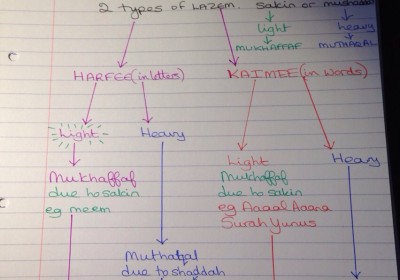 2 types of LAZEM. Sakin or mushaddad
light heavy
MUKHAFFAF MUTHAQAL
HARFEE (in letters) KALMEE (in words)
Light Heavy
Light Heavy
Mukhaffaf Mukhaffaf
due to sakin due to sakin
eg meem eg Aaaal Aaana
Surah Yunus
Muthaqal
due to shaddah